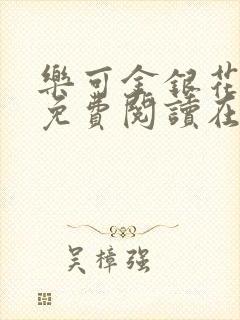 樂可金銀花
免費閱讀在
吴樟强